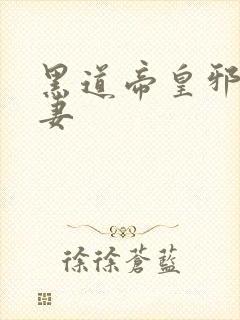 黑道帝皇邪
妻
徐徐蒼藍